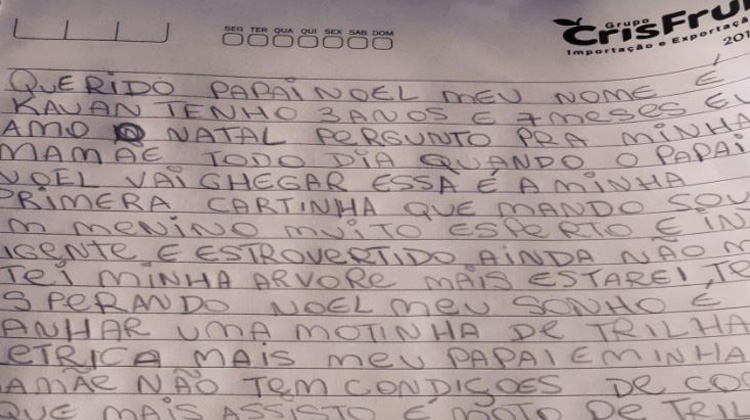 SEG TER QUA QUI SEX SAB DOM
Grupo
CRISFRUT
Importação e Exportaçã
201
QUERIDO PAPAI NOEL MEU NOME É
KAUAN TENHO 3 ANOS E 7 MESES EU
AMO O NATAL PERGUNTO PRA MINHA
MAMÃE TODO DIA QUANDO O PAPAI
NOEL VAI CHEGAR ESSA É A MINHA
PRIMERA CARTINHA QUE MANDO SOU
M MENINO MUITO ESPERTO E INT
IGENTE E ESTROVERTIDO AINDA NÃO M
TEI MINHA ARVORE MAIS ESTAREI TE
SPERANDO NOEL MEU SONHO É
ANHAR UMA MOTINHA DE TRILHA
ETRICA MAIS MEU PAPAI E MINHA
AMÃE NÃO TEM CONDIÇOES DE COM
QUE MAIS ASSISTO É MOTO DE TRIL